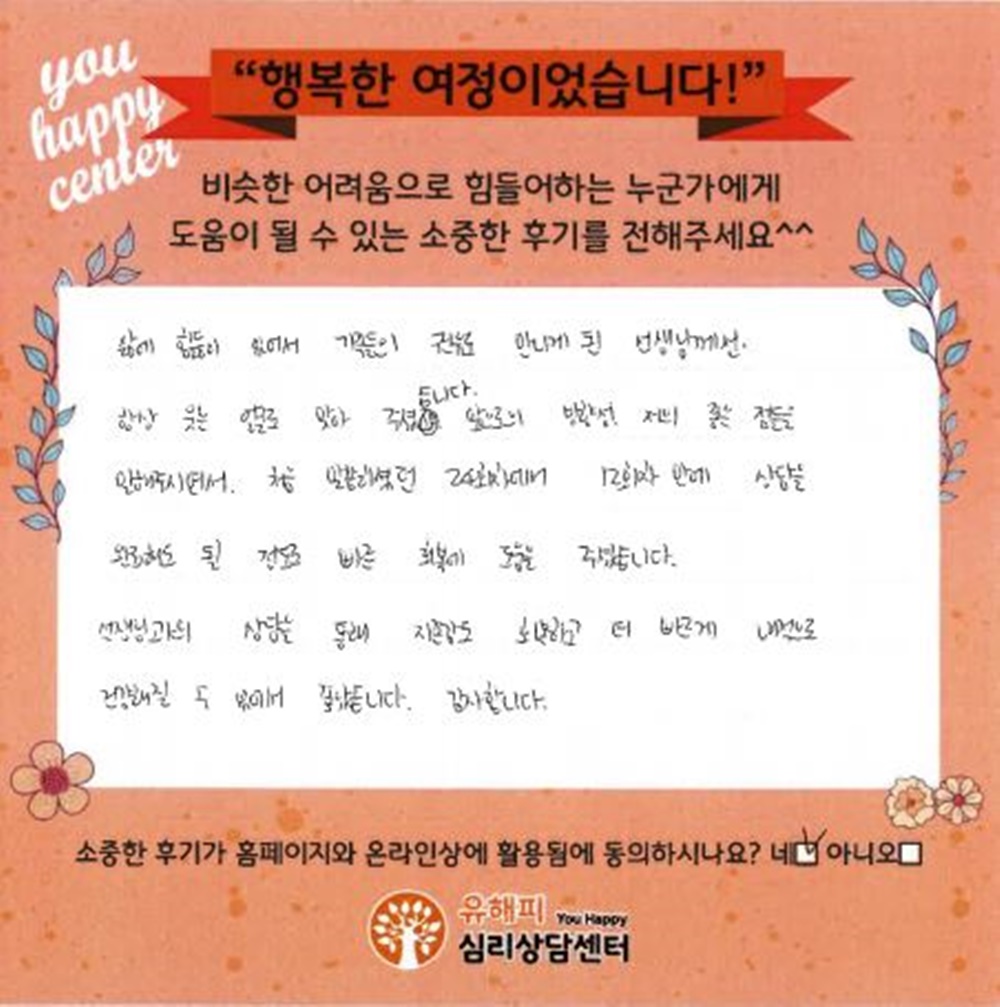 you
happy
center
“행복한 여정이었습니다!”
비슷한 어려움으로 힘들어하는 누군가에게
도움이 될 수 있는 소중한 후기를 전해주세요^^
삶에 힘듦이 있어서 가족들의 권유로 만나게 된 선생님께선.
습니다.
항상 웃는 얼굴로 맞아 주셨 앞으로의 방향성, 저의 좋은 점들을
말해주시면서. 처음 말씀하셨던 24회차에서 12회차 만에 상담을
완료해도 될 정도로 빠른 회복에 도움을 주셨습니다.
선생님과의 상담을 통해 자존감도 회복하고 더 빠르게 내적으로
건강해질 수 있어서 좋았습니다. 감사합니다.
소중한 후기가 홈페이지와 온라인상에 활용됨에 동의하시나요? 네☑ 아니오☐
유해피 You Happy
심리상담센터